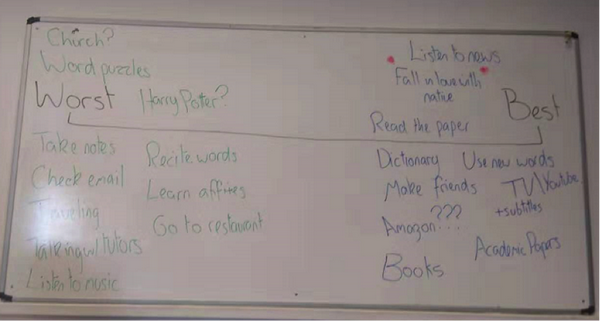 Church?
Word puzzles
Worst Harry Poter?
Take notes
Recite words
Check email
Learn affixes
Traveling
Go to restaurant
Talking w/ tutors
Listen to music
Listen to news
Fall in love with
native
Best
Read the paper
Dictionary Use new words
Make friends TV/Youtube
+subtitles
Amazon???...
Academic Papers
Books